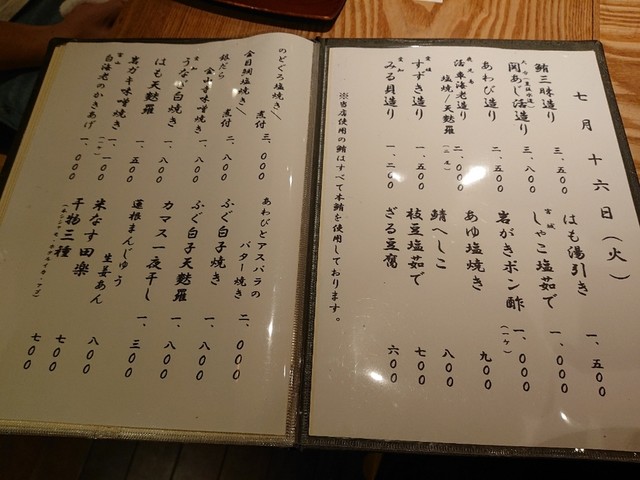 七月十六日(火)
鮪三昧造り 三、五〇〇
大分(豊後水道)
関あじ活造り 三、八〇〇
あわび造り 二、五〇〇
鹿児島
活車海老造り
塩焼/天麩羅 二、〇〇〇
愛媛
すずき造り 一、五〇〇
愛知
みる貝造り 一、二〇〇
はも湯引き 一、五〇〇
宮城
しゃこ塩茹で 一、〇〇〇
岩がきポン酢(一ケ) 一、〇〇〇
あゆ塩焼き 九〇〇
鯖へしこ 八〇〇
枝豆塩茹で 七〇〇
ざる豆腐 六〇〇
※当店使用の鮪はすべて本鮪を使用しております。
のどぐろ塩焼き/煮付 三、〇〇〇
金目鯛塩焼き/煮付 二、八〇〇
銀だら
金山寺味噌焼き 一、八〇〇
愛知
うなぎ白焼き 一、八〇〇
はも天麩羅 一、五〇〇
岩ガキ味噌焼き(一ケ) 一、一〇〇
富山
白海老のかきあげ 一、〇〇〇
あわびとアスパラの
バター焼き 二、〇〇〇
ふぐ白子焼き 一、八〇〇
ふぐ白子天麩羅 一、八〇〇
カマス一夜干し 一、三〇〇
蓮根まんじゅう
生姜あん 八〇〇
米なす田楽 七〇〇
干物三種 七〇〇